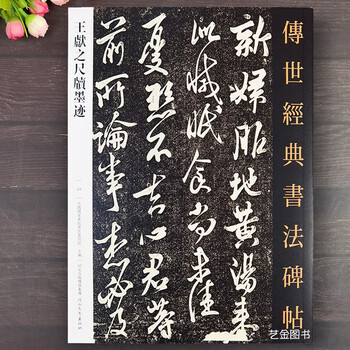 傳世經典書法碑帖
新婦服地黃湯來
似減眠食尚未佳
憂懸不去心君等
前所論事想必及
王獻之尺牘墨迹
艺金图书